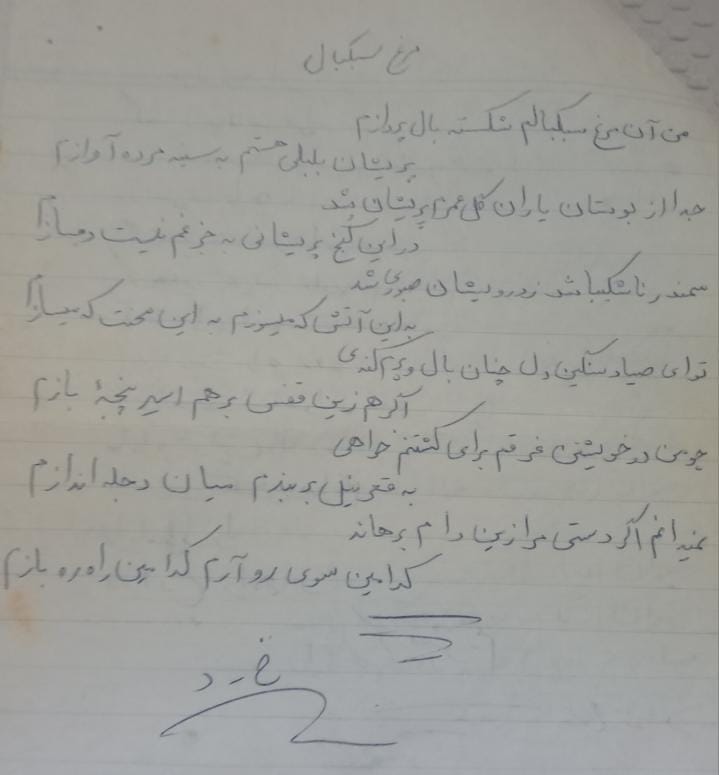 مرغ سبکبال
من آن مرغ سبکبالم شکسته بال پروازم
پریشان بلبلی هستم به سینه مرده آوازم
جدا از بوستان یاران گل عمرم پریشان شد
در این کنج پریشانی به جز غم نیست دمسازم
سمندر ناشکیبا شد ز درویشان صبوری شد
به این آتش که میسوزم به این محنت که میسازم
تو ای صیاد سنگین دل چنان بال و پرم کندی
اگر هم زین قفس برهم اسیر پنجهٔ بازم
چو من در خویشتن غرقم برای کشتنم خواهی
به قعر نیل بر بندم میان دجله اندازم
نمیدانم اگر دستی مرا زین دام برهاند
کدامین سوی رو آرم کدامین راه ره بازم